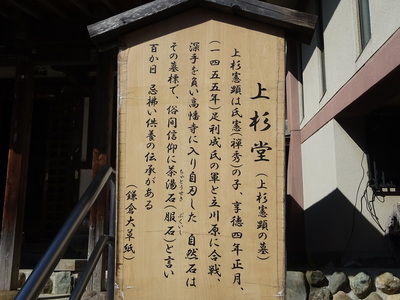 上杉堂（上杉憲顕の墓）
上杉憲顕は氏憲（禅秀）の子、享徳四年正月、
（一四五五年）足利成氏の軍と立川原に合戦、
深手を負い高幡寺に入り自刃した 自然石は
その墓標で、俗間信仰に茶湯石（服石）と言い
百か日 忌払い供養の伝承がある
（鎌倉大草紙）